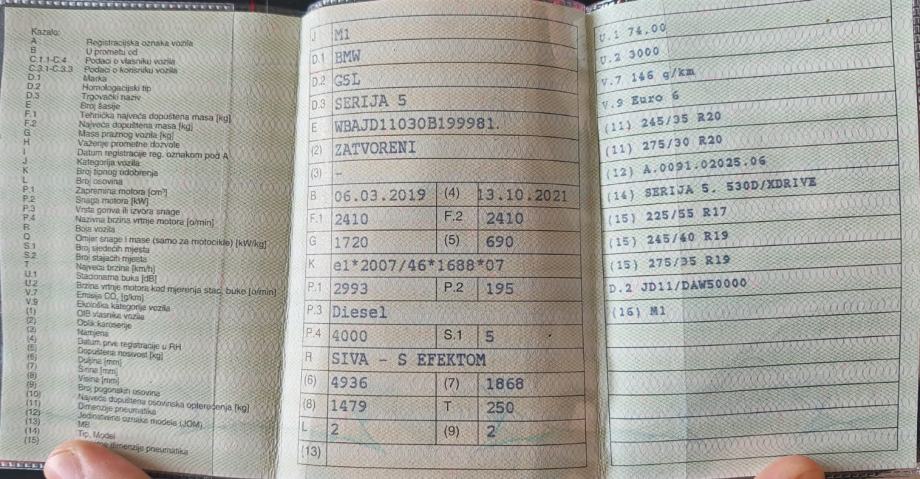 Kazalo:
A Registracijska oznaka vozila
B U prometu od
C.1.1-C.4 Podaci o vlasniku vozila
C.3.1-C.3.3 Podaci o korisniku vozila
D.1 Marka
D.2 Homologacijski tip
D.3 Trgovački naziv
E Broj šasije
F.1 Tehnička najveća dopuštena masa [kg]
F.2 Najveća dopuštena masa [kg]
G Masa praznog vozila [kg]
H Važenje prometne dozvole
I Datum registracije reg. oznakom pod A
J Kategorija vozila
K Broj tipnog odobrenja
L Broj osovina
P.1 Zapremina motora [cm³]
P.2 Snaga motora [kW]
P.3 Vrsta goriva ili izvora snage
P.4 Nazivna brzina vrtnje motora [o/min]
R Boja vozila
Q Omjer snage i mase (samo za motocikle) [kW/kg]
S.1 Broj sjedećih mjesta
S.2 Broj stajaćih mjesta
T Najveća brzina [km/h]
U.1 Stacionarna buka [dB]
U.2 Brzina vrtnje motora kod mjerenja stac. buke [o/min]
V.7 Emisija CO₂ [g/km]
V.9 Ekološka kategorija vozila
(1) OIB vlasnika vozila
(2) Oblik karoserije
(3) Namjena
(4) Datum prve registracije u RH
(5) Dopuštena nosivost [kg]
(6) Duljina [mm]
(7) Širina [mm]
(8) Visina [mm]
(9) Broj pogonskih osovina
(10) Najveća dopuštena osovinska opterećenja [kg]
(11) Dimenzije pneumatika
(12) Jedinstvena oznaka modela (JOM)
(13) MB
(14) Tip, Model
(15) dimenzije pneumatika
J M1
D.1 BMW
D.2 G5L
D.3 SERIJA 5
E WBAJD11030B199981.
(2) ZATVORENI
(3) -
B 06.03.2019 (4) 13.10.2021
F.1 2410 F.2 2410
G 1720 (5) 690
K e1*2007/46*1688*07
P.1 2993 P.2 195
P.3 Diesel
P.4 4000 S.1 5
R SIVA - S EFEKTOM
(6) 4936 (7) 1868
(8) 1479 T 250
L 2 (9) 2
(13)
U.1 74,00
U.2 3000
V.7 146 g/km
V.9 Euro 6
(11) 245/35 R20
(11) 275/30 R20
(12) A.0091.02025.06
(14) SERIJA 5. 530D/XDRIVE
(15) 225/55 R17
(15) 245/40 R19
(15) 275/35 R19
D.2 JD11/DAW50000
(16) M1